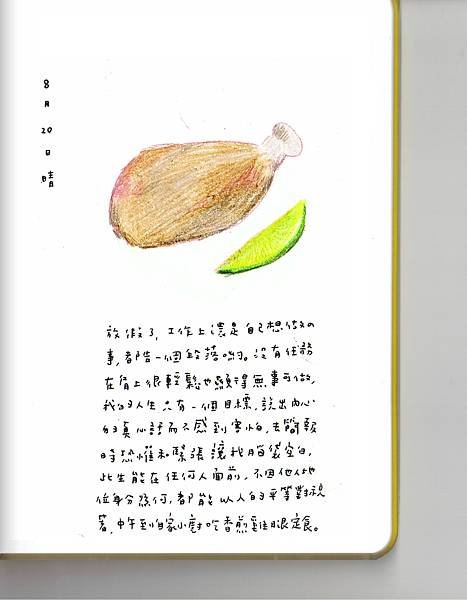 8月20日 晴
放假了,工作上還是自己想做の
事,都告一個段落喲。沒有任務
在肩上很輕鬆也顯得無事可做,
我的人生只有一個目標,說出內心
的真心話而不感到害怕,去簡報
時恐懼和緊張讓我腦袋空白,
此生能在任何人面前,不因他人地
位身分為何,都能以人的平等對視
著,中午到自家小廚吃香煎雞腿定食。